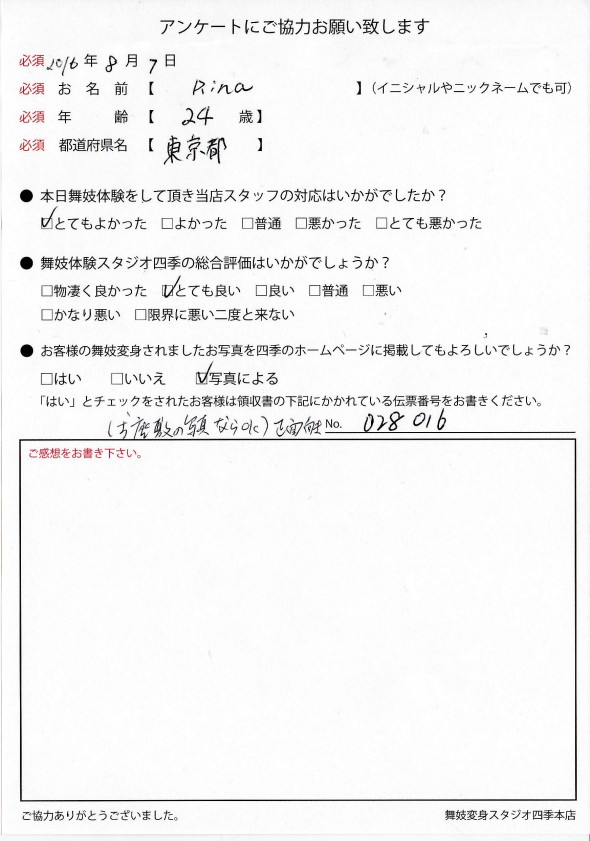 アンケートにご協力お願い致します
必須 2016年 8月 7日
必須 お名前【 Rina 】(イニシャルやニックネームでも可)
必須 年齢【 24 歳】
必須 都道府県名【 東京都 】
● 本日舞妓体験をして頂き当店スタッフの対応はいかがでしたか?
☑とてもよかった □よかった □普通 □悪かった □とても悪かった
● 舞妓体験スタジオ四季の総合評価はいかがでしょうか?
□物凄く良かった ☑とても良い □良い □普通 □悪い
□かなり悪い □限界に悪い二度と来ない
● お客様の舞妓変身されましたお写真を四季のホームページに掲載してもよろしいでしょうか?
□はい □いいえ ☑写真による
「はい」とチェックをされたお客様は領収書の下記にかかれている伝票番号をお書きください。
(お座敷の写真ならOK) No. 028 016
ご感想をお書き下さい。
ご協力ありがとうございました。 舞妓変身スタジオ四季本店